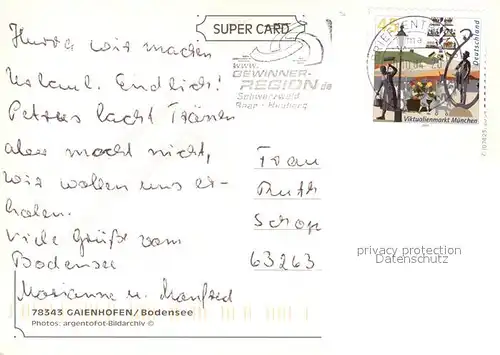 SUPER CARD
Hurra wir machen
Urlaub. Endlich!
Petrus lacht Tränen
aber macht nicht,
wir wollen uns er-
holen.
Viele Grüße vom
Bodensee
Marianne u. Manfred
78343 GAIENHOFEN/Bodensee
Photos: argentofot-Bildarchiv ©
www.
GEWINNER-
REGION.de
Schwarzwald
Baar - Heuberg
BRIEFZENT
45
Deutschland
Viktualienmarkt München
Frau
Ruth
Schop
63263
privacy protection
Datenschutz